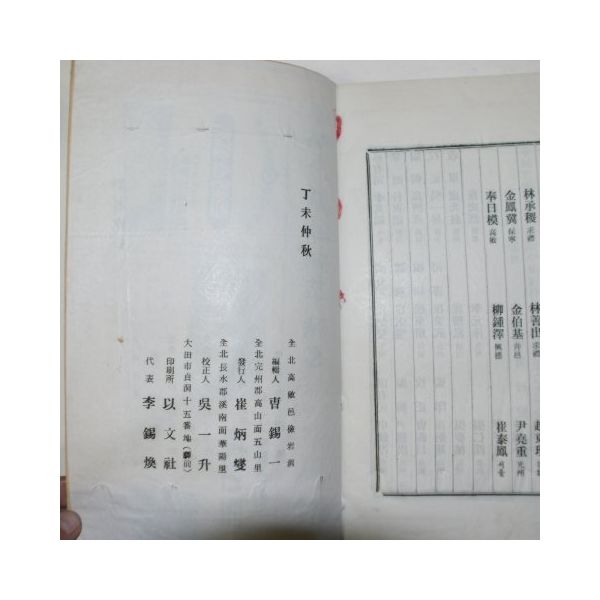 丁未仲秋
全北高敞邑
編輯人 曺錫一
全北完州郡高山面五山里
發行人 崔炳燮
全北長水郡溪南面華陽里
校正人 吳一升
大田市貞洞十五番地(驛前)
印刷所 以文社
代表 李錫煥
林承稷 求禮
林善 求禮
金鳳冀 保寧
金伯基 井邑
尹堯重
奉日模 高敞
柳鍾澤 興德
崔泰鳳 서울